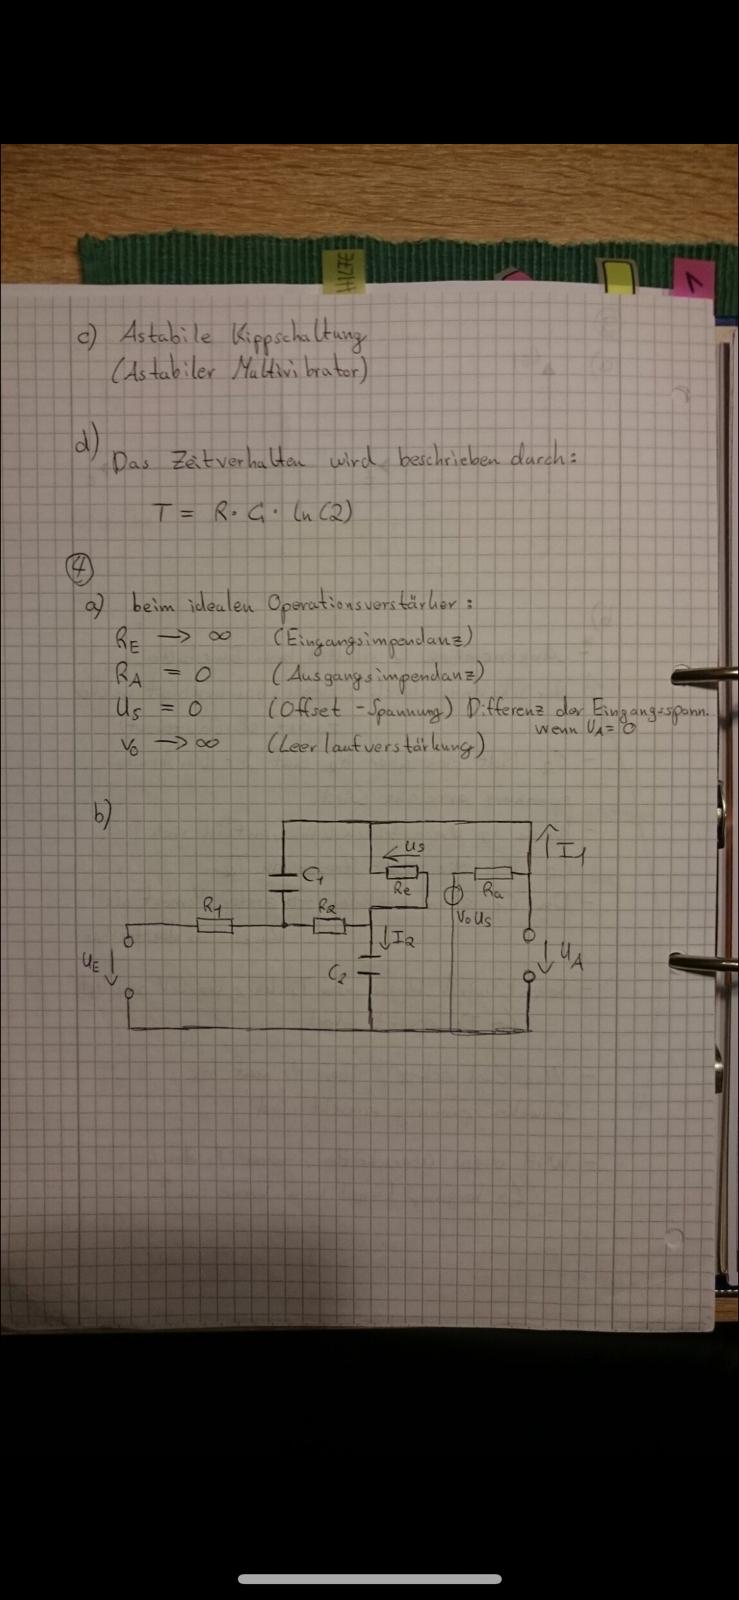 HILFE
1
c) Astabile Kippschaltung
(Astabiler Multivibrator)
d) Das Zeitverhalten wird beschrieben durch:
T = R · C₁ · ln(2)
④
a) beim idealen Operationsverstärker:
R_E → ∞ (Eingangsimpendanz)
R_A = 0 (Ausgangsimpendanz)
U_S = 0 (Offset-Spannung) Differenz der Eingangsspann.
wenn U_A = 0
V₀ → ∞ (Leerlaufverstärkung)
b)
U_S
I_1
C_1
R_e
R_a
R_1
R_2
V₀ U_S
I_2
U_E
C_2
U_A